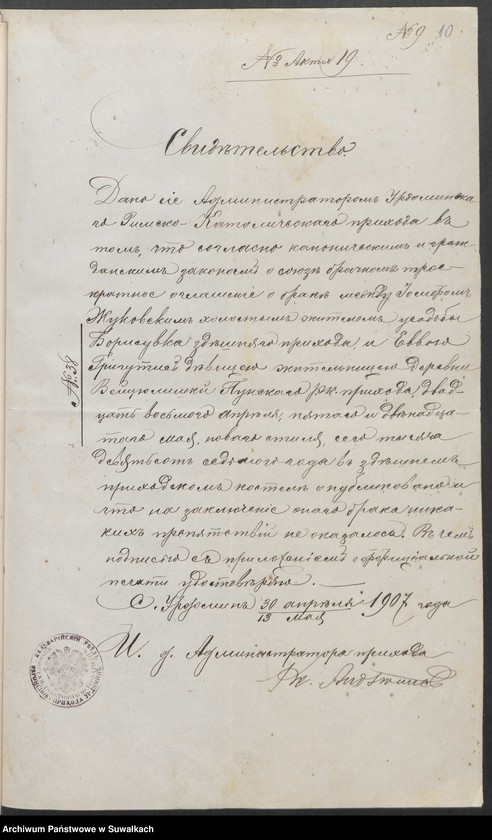 №9 10
№ Акта 19
Свидѣтельство.
Дано сіе Администраторомъ Урдоминска-
го Римско-Католическаго прихода въ
томъ, что согласно каноническимъ и граж-
данскимъ законамъ о союзѣ брачномъ трое-
кратное оглашеніе о бракѣ между Іосифомъ
Жуковскимъ холостымъ жителемъ усадьбы
Борисувка здѣшняго прихода, и Еввою
Григутисъ дѣвицею жительницею деревни
Вейцюлишки Пунскаго р.к. прихода, двад-
цать восьмого апрѣля, пятаго и двѣнадца-
таго мая, новаго стиля, сего тысяча
девятьсотъ седьмого года въ здѣшнемъ
приходскомъ костелѣ опубликовано и
что на заключеніе онаго брака ника-
кихъ препятствій не оказалось. Въ чемъ
подписью съ приложеніемъ оффиціальной
печати удостовѣряю.
С. Урдоминъ 30 апрѣля / 13 мая 1907 года
И. д. Администратора прихода
Кс.
№38
Archiwum Państwowe w Suwałkach